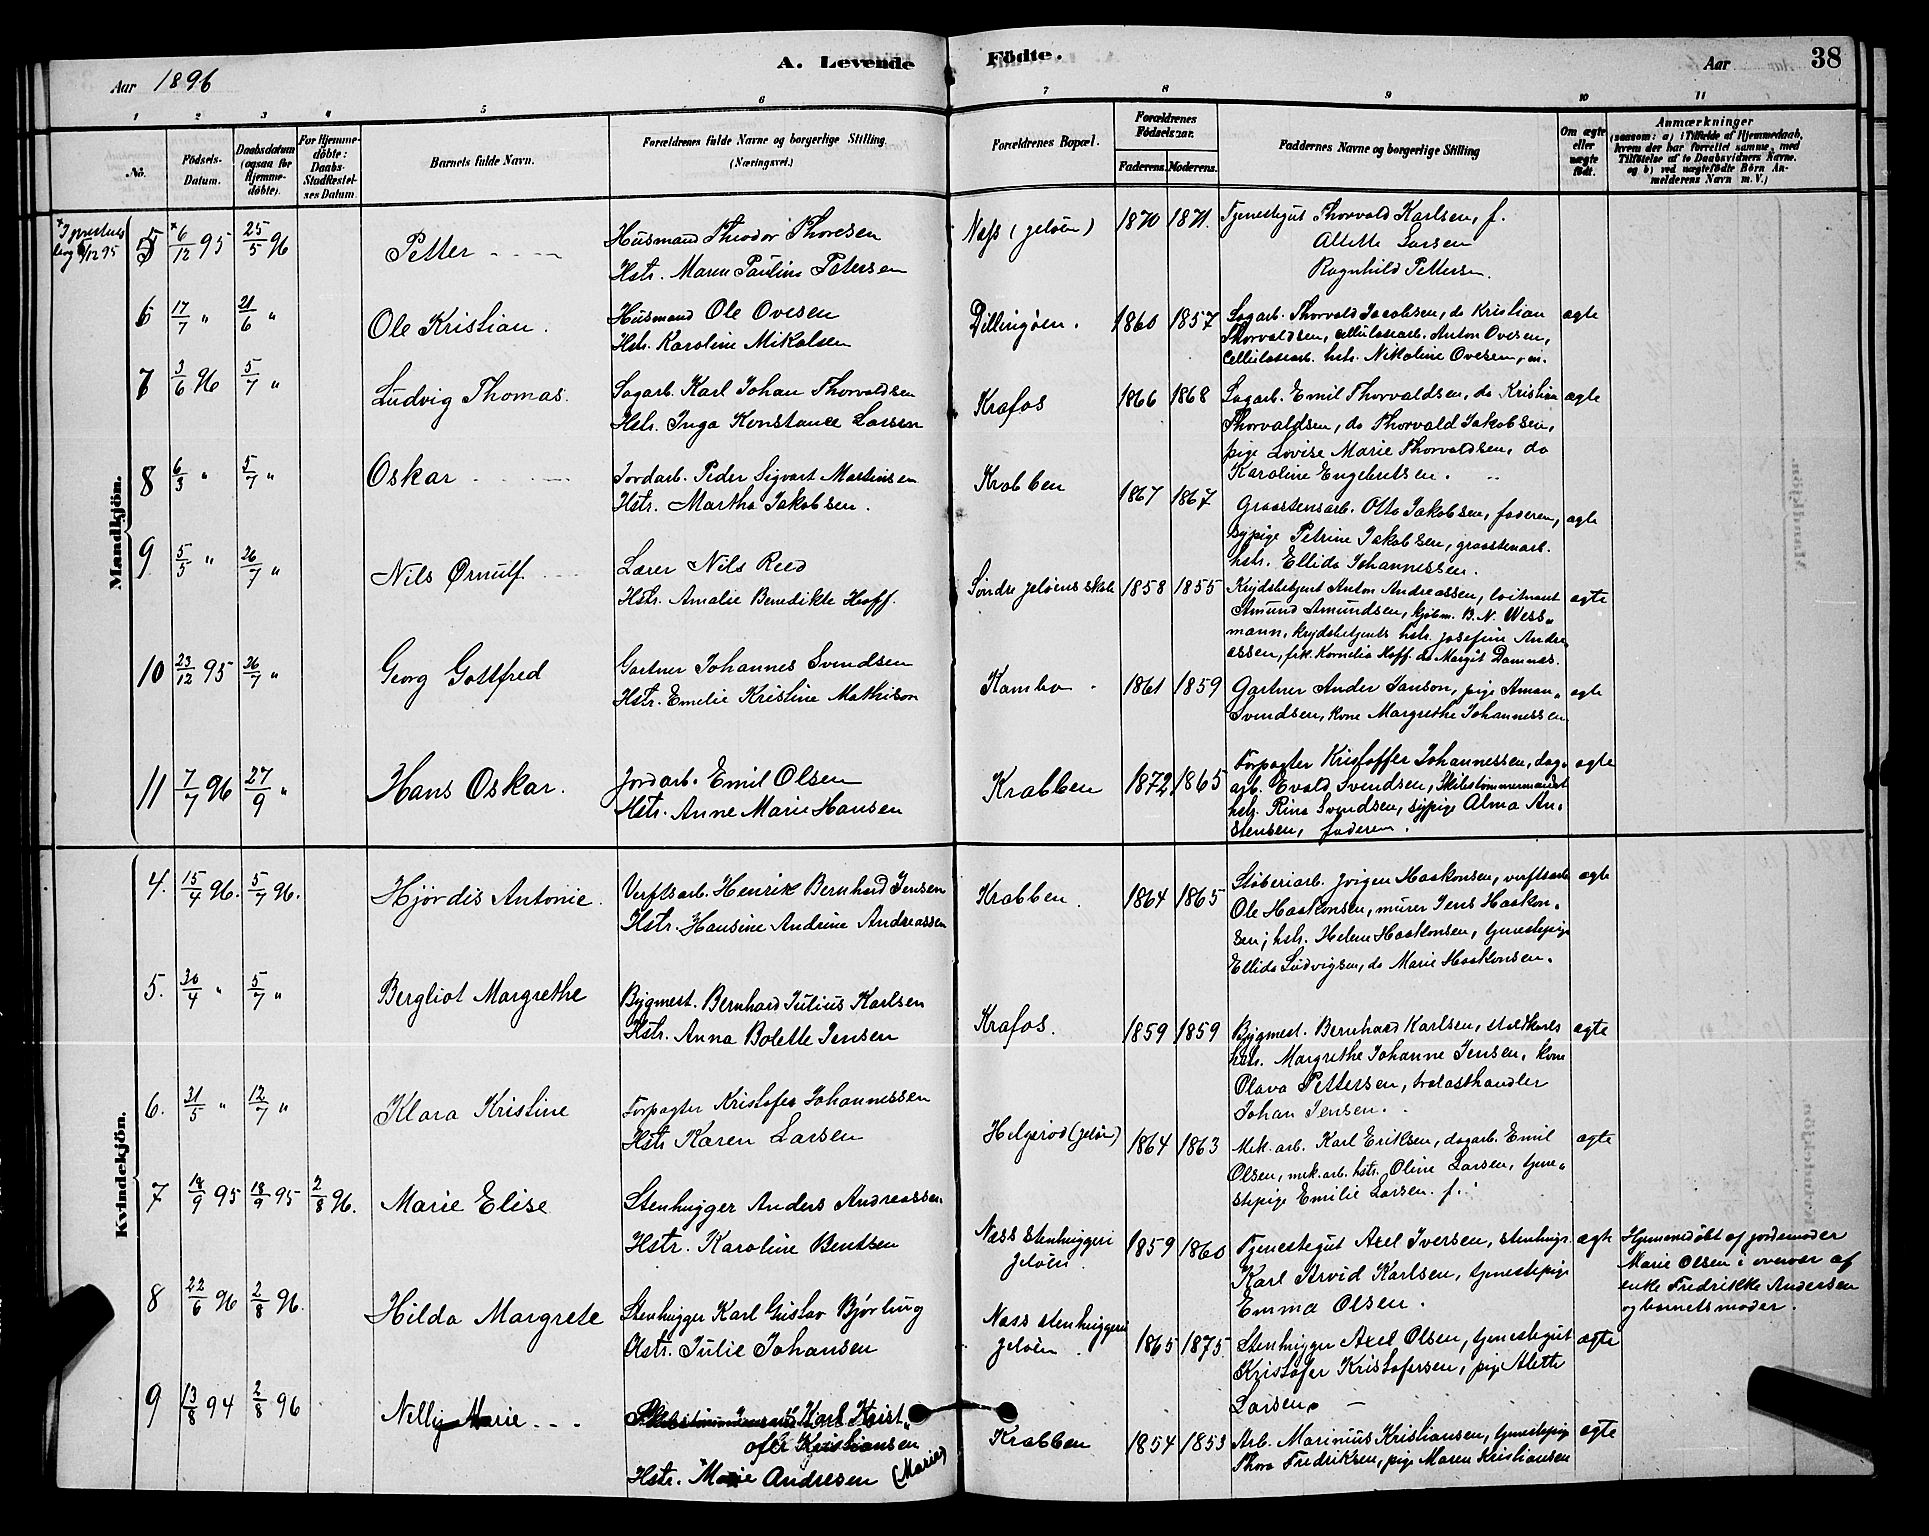 Aar 1896
A. Levende Födte.
Aar
38
1 2 3 4 5 6 7 8 9 10 11
No.
Födsels-Datum.
Daabsdatum (ogsaa for Hjemme-döbte).
For Hjemme-döbte: Daabs-Stadfæstelses Datum.
Barnets fulde Navn.
Forældrenes fulde Navne og borgerlige Stilling. (Næringsvei.)
Forældrenes Bopæl.
Forældrenes Födselsaar.
Faderens. Moderens.
Faddernes Navne og borgerlige Stilling
Om ægte eller uægte födt.
Anmærkninger
(saasom: a) i Tilfælde af Hjemmedaab, hvem der har forrettet samme, med Tilföielse af to Daabsvidners Navne, og b) ved uægtefödte Börn Anmelderens Navn m. V.)
Mandkjön.
5 6/12 95 25/5 96 Petter
Husmand Theodor Thoresen
Hstr. Maren Pauline Petersen
Næss (Jeløen) 1870 1871.
Tjenestegut Thorvald Karlsen, f.
Allette Larsen
Ragnhild Pettersen.
6 17/7 " 21/6 " Ole Kristian.
Husmand Ole Ovesen
Hstr. Karoline Mikalsen
Dillingøen. 1860 1857
Sagarb. Thorvald Jacobsen, do Kristian
Thorvaldsen, cellulosearb. Anton Ovesen,
cellulosearb. hstr. Nikoline Ovesen, m.
ægte
7 3/6 96 5/7 " Ludvig Thomas.
Sagarb. Karl Johan Thorvaldsen
Hstr. Inga Konstance Larsen
Krafos 1866 1868
Sagarb. Emil Thorvaldsen, do Kristian
Thorvaldsen, do Thorvald Jakobsen,
pige Lovise Marie Thorvaldsen, do
Karoline Engebretsen.
ægte
8 6/3 " 5/7 " Oskar
Jordarb. Peder Sigvart Martinsen
Hstr. Martha Jakobsen.
Krabben 1867 1867
Graastensarb. Otto Jakobsen, faderen,
sypige Petrine Jakobsen, graastenarb.
hstr. Ellida Johannessen.
ægte
9 5/5 " 26/7 " Nils Ørnulf
Lærer Nils Reed
Hstr. Amalie Benedikte Hoff.
Søndre Jeløens skole 1858 1855
Krydsbetjent Anton Andreassen, loitnant
Amund Amundsen, kjøbm. B. N. Wess-
mann, krydsbetjents hstr. Josefine Andre
assen, frk. Kornelia Hoff. do Margit Damnæs.
ægte
10 23/12 95 26/7 " Georg Gottfred
Gartner Johannes Svendsen
Hstr. Emelie Kristine Mathison
Kambo 1861 1859
Gartner Ander Janson, pige Aman.
Svendsen, kone Margrethe Johannessen.
ægte
11 7/7 96 27/9 " Hans Oskar.
Jordarb. Emil Olsen
Hstr. Anne Marie Hansen
Krabben 1872 1865
Forpagter Kristoffer Johannessen, dag-
arb. Evald Svendsen, Skibstømmermands
hstr. Rina Svendsen, sypige Alma An-
stensen, faderen.
ægte
Kvindekjön.
4. 15/4 96. 5/7 96. Hjördis Antonie.
Verftsarb. Henrik Bernhard Jensen
Hstr. Hansine Andrine Andreassen
Krabben. 1864 1865
Støberiarb. Jørgen Haakonsen, verftsarb.
Ole Haakonsen, murer Jens Haakon-
sen; hstr. Helene Haakonsen, tjenestepige
Ellida Ludvigsen, do Marie Haakonsen.
ægte
5. 30/4 " 5/7 " Bergliot Margrethe
Bygmest. Bernhard Julius Karlsen
Hstr. Anna Bolette Jensen
Krafos. 1859 1859
Bygmest. Bernhard Karlsen, stoldkarls
hstr. Margrethe Johanne Jensen, kone
Olava Pettersen, trælasthandler
Johan Jensen.
ægte
6. 31/5 " 12/7 " Klara Kristine
Forpagter Kristofer Johannessen
Hstr Karen Larsen
Helgerød (Jeløen) 1864 1863
Mek. arb. Karl Eriksen, dagarb. Emil
Olsen, mek. arb. hstr. Oline Larsen, tjene-
stepige Emilie Larsen. f.
ægte
7 14/9 95 18/9 95 2/8 96. Marie Elise
Stenhugger Anders Andreassen
Hstr. Karoline Bentsen
Næss stenhuggeri Jeløen. 1859 1860
Tjenestegut Axel Iversen, stenhugr.
Karl Arvid Karlsen, tjenestepige
Emma Olsen.
ægte
Hjemmedøbt af jordemoder
Marie Olsen i overvær af
enke Fredrikke Andersen
og barnets moder.
8 22/6 96 2/8 96. Hilda Margrete
Stenhugger Karl Gustav Bjørling
Hstr. Julie Johansen
Næss stenhuggeri Jeløen. 1865 1875
Stenhugger Axel Olsen, tjenestegut
Kristofer Kristofersen, pige Alette
Larsen.
ægte
9 13/8 94 2/8 96 Nelly Marie
Karl Krist-
ofer Kristiansen
Hstr. Marie Andresen (Marie)
Krabben 1854 1853
Arb. Marinius Kristiansen, tjenestepige
Thora Fredriksen, pige Maren Kristiansen
ægte